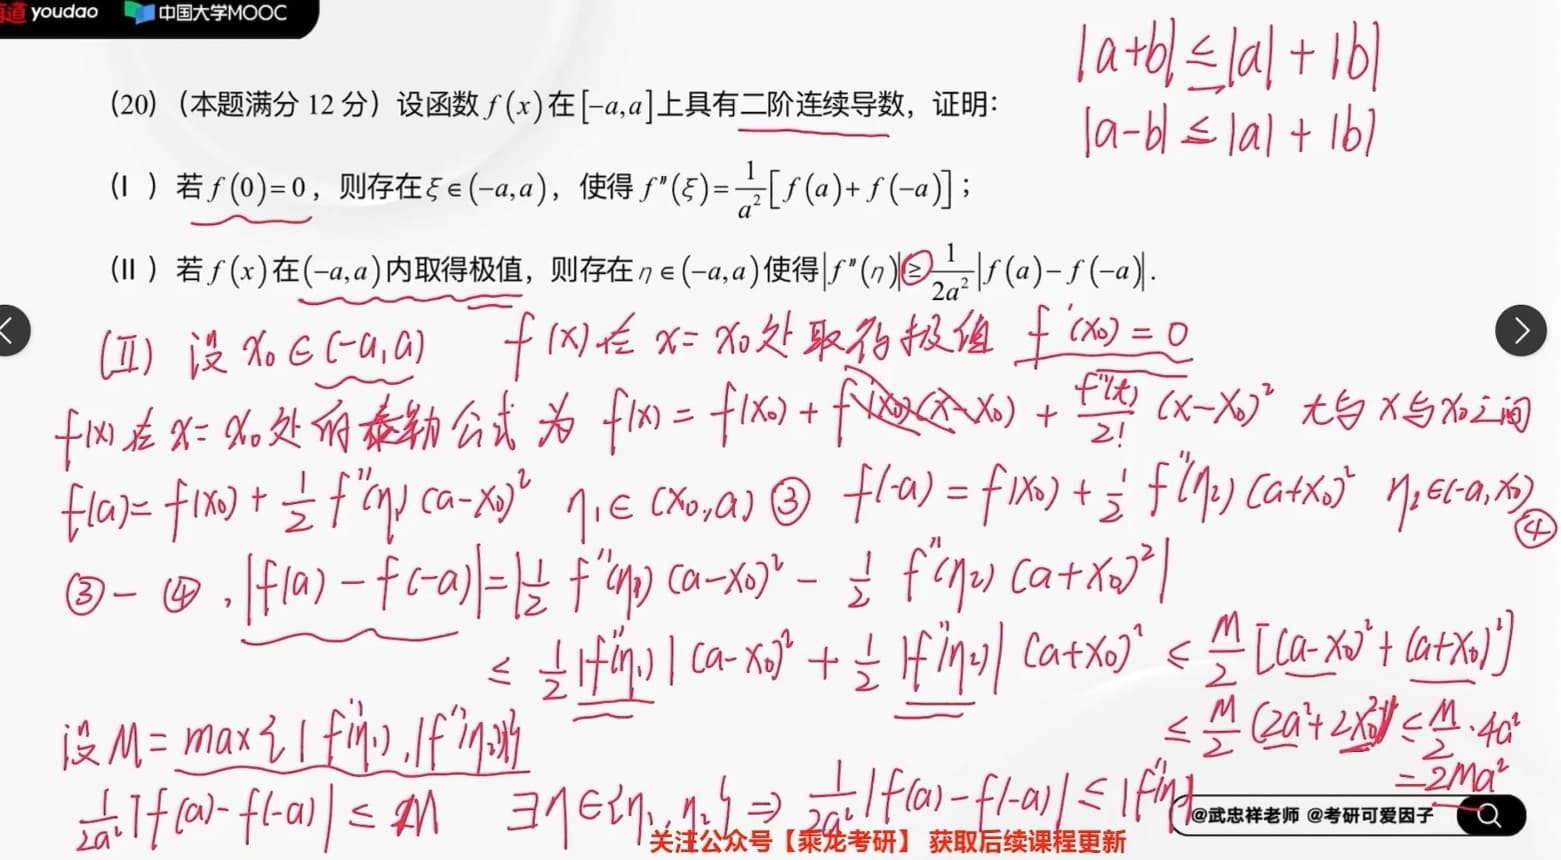 有道 youdao 中国大学MOOC
|a+b| ≤ |a| + |b|
|a-b| ≤ |a| + |b|
(20)（本题满分 12 分）设函数 f(x) 在 [-a,a] 上具有二阶连续导数，证明：
(I ) 若 f(0)=0，则存在 ξ∈(-a,a)，使得 f″(ξ)=1/a²[f(a)+f(-a)]；
(II ) 若 f(x) 在 (-a,a) 内取得极值，则存在 η∈(-a,a) 使得 |f″(η)| ≥ 1/2a² |f(a)-f(-a)|.
(II) 设 x₀∈(-a,a) f(x) 在 x=x₀ 处取得极值 f′(x₀)=0
f(x) 在 x=x₀ 处的泰勒公式为 f(x)=f(x₀)+f′(x₀)(x-x₀)+f″(t)/2! (x-x₀)² t 与 x 与 x₀ 之间
f(a)=f(x₀)+1/2 f″(η₁)(a-x₀)² η₁∈(x₀,a) ③ f(-a)=f(x₀)+1/2 f″(η₂)(a+x₀)² η₂∈(-a,x₀) ④
③-④, |f(a)-f(-a)|=|1/2 f″(η₁)(a-x₀)² - 1/2 f″(η₂)(a+x₀)²|
≤ 1/2|f″(η₁)|(a-x₀)² + 1/2|f″(η₂)|(a+x₀)² ≤ M/2[(a-x₀)²+(a+x₀)²]
设 M=max{|f″(η₁)|,|f″(η₂)|} ≤ M/2(2a²+2x₀²) ≤ M/2·4a²
=2Ma²
1/2a²|f(a)-f(-a)| ≤ M ∃η∈{η₁,η₂} ⇒ 1/2a²|f(a)-f(-a)| ≤ |f″(η)|
@武忠祥老师 @考研可爱因子
关注公众号【乘龙考研】 获取后续课程更新